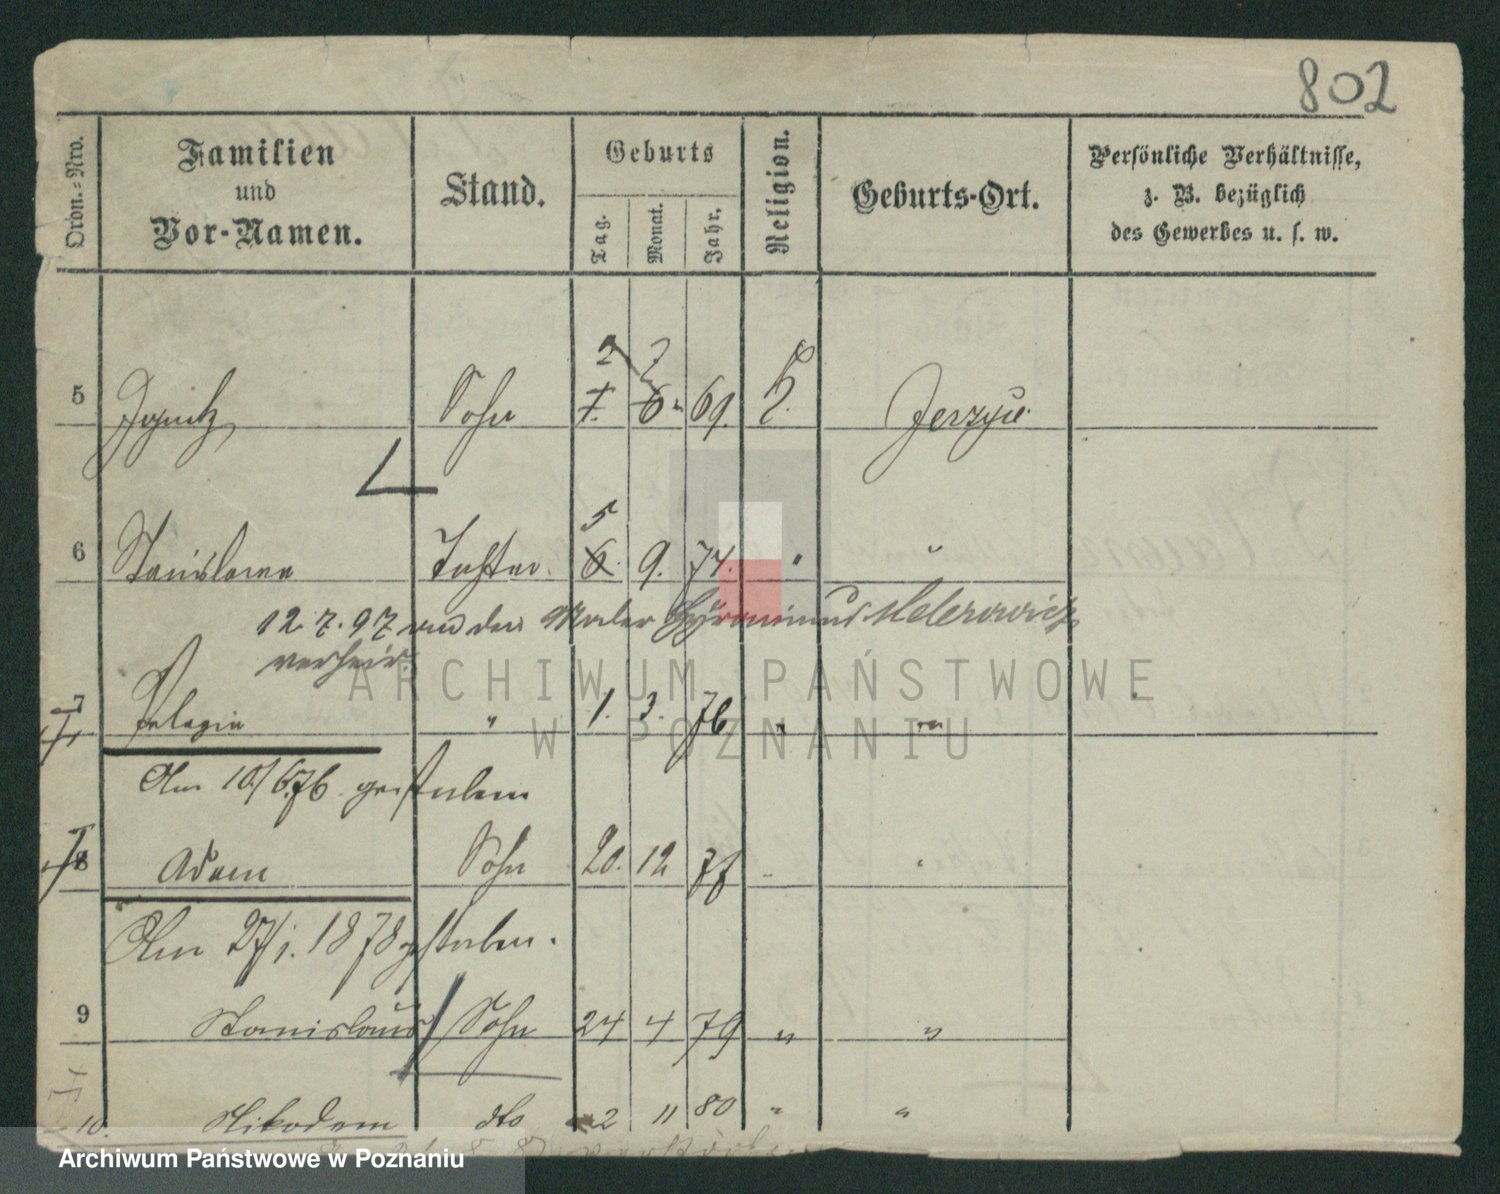 802
Ordn.-Nro.
Familien
und
Vor-Namen.
Stand.
Geburts
Tag.
Monat.
Jahr.
Religion.
Geburts-Ort.
Persönliche Verhältnisse,
z. B. bezüglich
des Gewerbes u. s. w.
2 7
5 Ignatz Sohn 7. 6. 69. K. Jerzyce
5
6 Stanislawa Tochter 6. 9. 74. "
12.7.97 an den Maler Hyronimus
verheir.
7 Pelagia " 1. 3. 76 " "
Am 10/6.76. gestorben
8 Adam Sohn 20. 12 77
Am 27/1. 1878 gestorben.
9 Stanislaus Sohn 24 4 79 " "
10. Nikodem dto 2 11 80 " "
ARCHIWUM PAŃSTWOWE
W POZNANIU
Archiwum Państwowe w Poznaniu